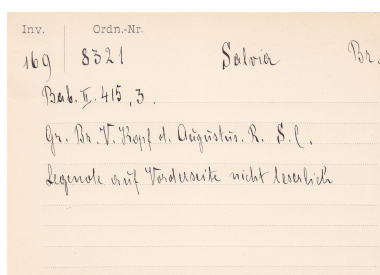 Inv. Ordn.-Nr.
169 8321 Salvia Br.
Bab. II. 415, 3.
Gr. Br. V. Kopf d. Augustus. R. S. C.
Legende auf Vorderseite nicht leserlich